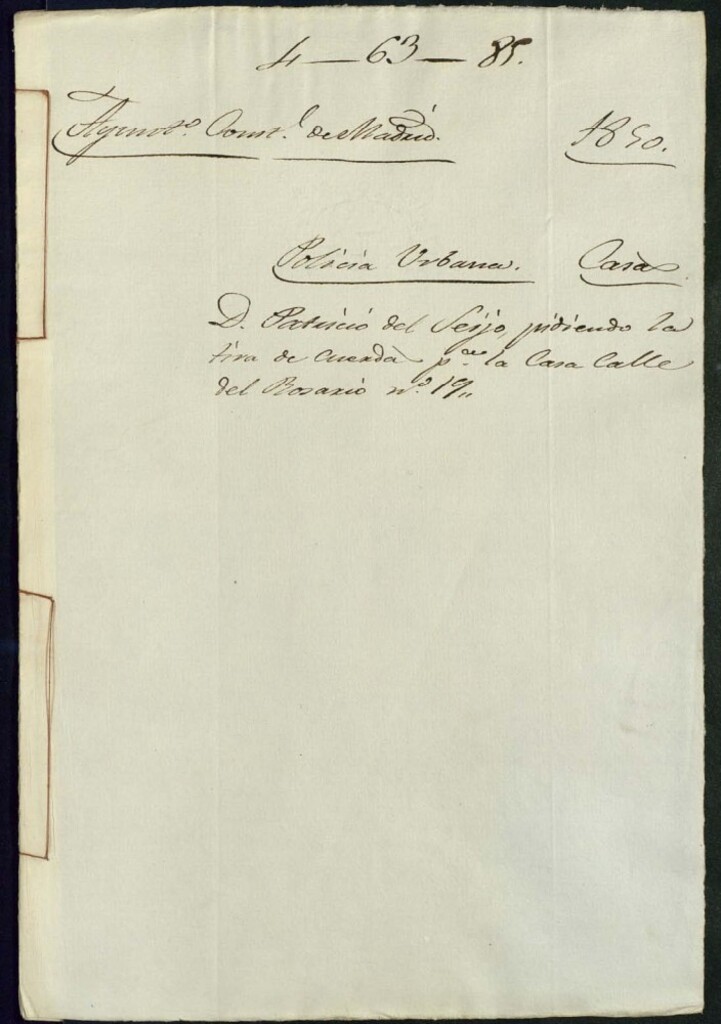 4 — 63 — 85.
Ayunt.º Const.l de Madrid. 1850.
Policia Urbana. Casas
D. Patricio del Seijo, pidiendo la
tira de cuerda p.ª la Casa Calle
del Rosario n.º 19,,